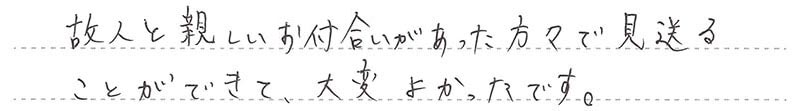 故人と親しいお付合いがあった方々で見送る
ことができて、大変よかったです。